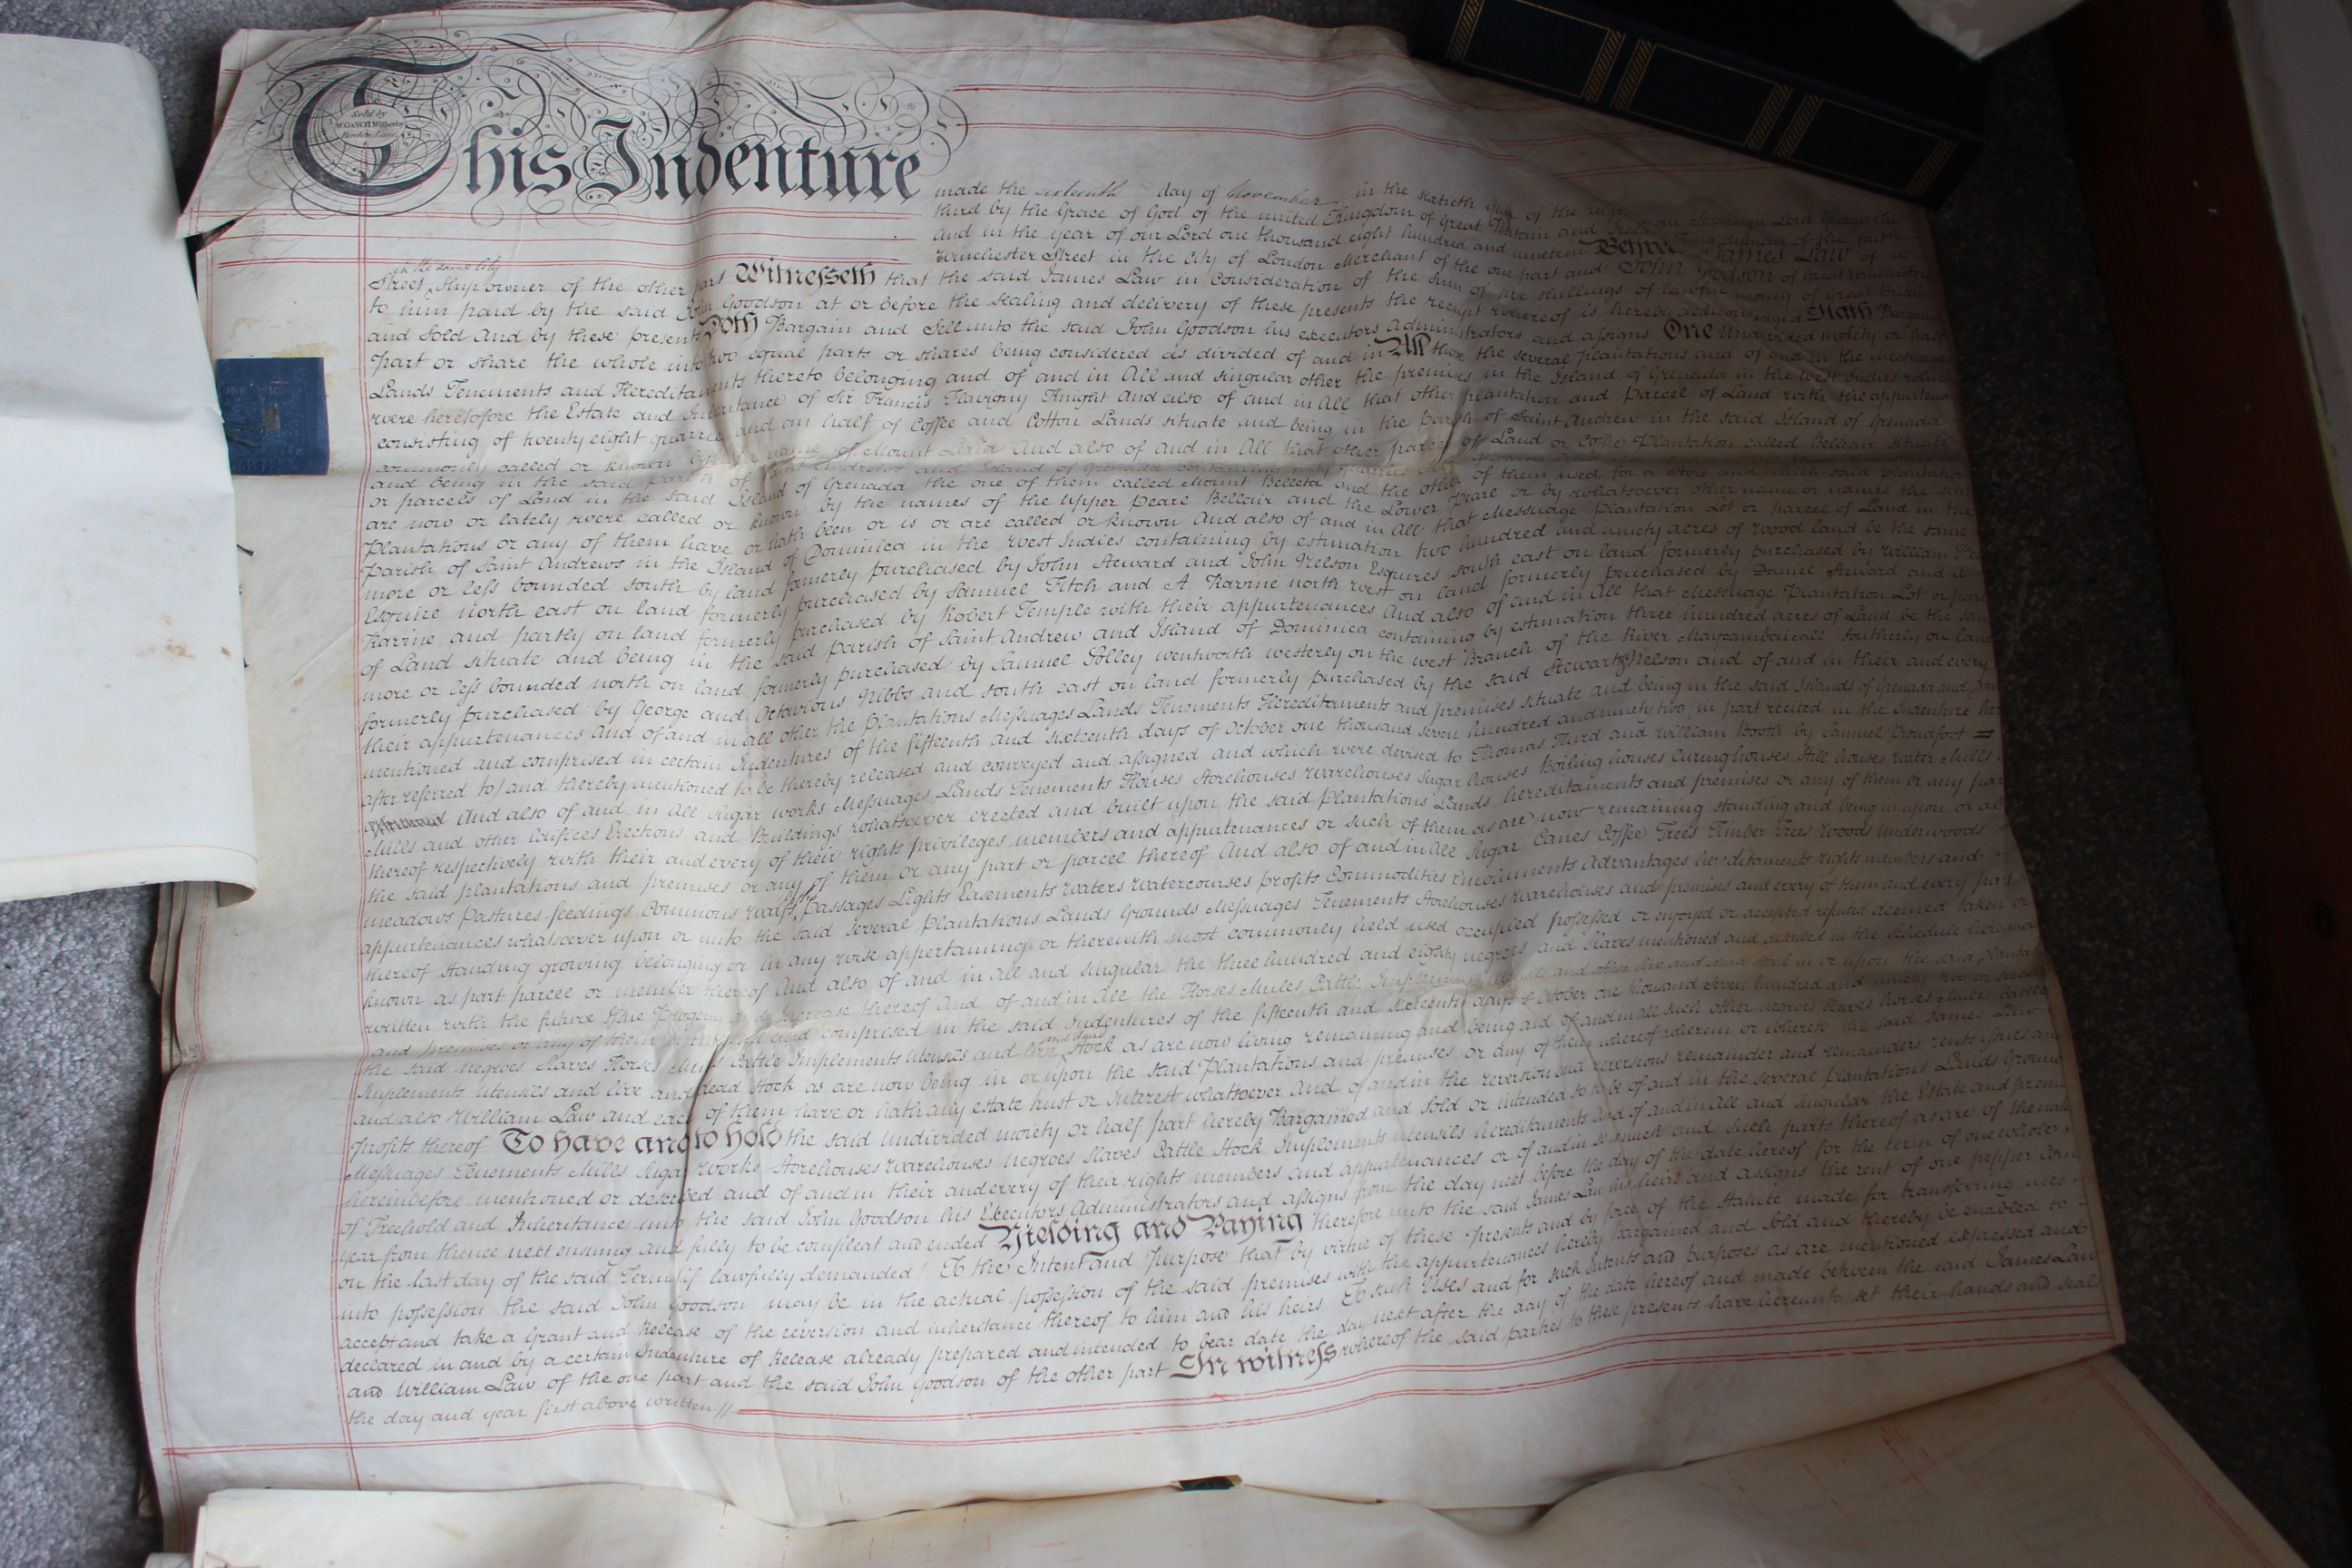 This Indenture
Sold by
W.G. & W.H. Witherby
Birchin Lane
made the sixteenth day of November in the sixtieth year of the reign of our Sovereign Lord George the
third by the Grace of God of the united Kingdom of Great Britain and Ireland King defender of the faith
and in the year of our Lord one thousand eight hundred and nineteen Between James Law of
Winchester Street in the City of London Merchant of the one part and John Goodson of Great Winchester
in the same City
Street Ship owner of the other part Witnesseth that the said James Law in Consideration of the sum of five shillings of lawful money of Great Britain
to him paid by the said John Goodson at or before the sealing and delivery of these presents the receipt whereof is hereby acknowledged Hath Bargained
and Sold And by these presents Doth Bargain and Sell unto the said John Goodson his executors Administrators and assigns One undivided moiety or half
part or share the whole into two equal parts or shares being considered as divided of and in All those the several plantations and of and in the Messuages
Lands Tenements and Hereditaments thereto belonging and of and in All and singular other the premises in the Island of Grenada in the West Indies which
were heretofore the Estate and Inheritance of Sir Francis Knight And also of and in All that other plantation and Parcel of Land with the appurtenances
consisting of twenty eight quarrees and an half of Coffee and Cotton Lands situate and being in the Parish of Saint Andrew in the said Island of Grenada
commonly called or known by the name of Mount And also of and in All that other parcel of Land or Coffee Plantation called Bellair situate
and being in the said Parish of Saint Andrews and Island of Grenada containing
or parcels of Land in the said Island of Grenada the one of them called Mount and the other of them used for a Store and which said plantations
are now or lately were called or known by the names of the upper Peare Bellair and the Lower Peare or by whatsoever other name or names the said
Plantations or any of them have or hath been or is or are called or known And also of and in All that Messuage Plantation Lot or parcel of Land in the
Parish of Saint Andrews in the Island of Dominica in the West Indies containing by estimation two hundred and ninety acres of wood land be the same
more or less bounded south by land formerly purchased by John Steward and John Nelson Esquires south east on land formerly purchased by William
Esquire north east on land formerly purchased by Samuel Fitch and A. Ravine north west on land formerly purchased by Daniel Steward and a
Ravine and partly on land formerly purchased by Robert Temple with their appurtenances And also of and in All that Messuage Plantation Lot or parcel
of Land situate and being in the said Parish of Saint Andrew and Island of Dominica containing by estimation three hundred acres of Land be the same
more or less bounded north on land formerly purchased by Samuel Polley Wentworth westerly on the west Branch of the River southerly on land
formerly purchased by George and Octavious Gibbs and south east on land formerly purchased by the said Stewart & Nelson and of and in their and every
their appurtenances And of and in all other the plantations Messuages Lands Tenements Hereditaments and premises situate and being in the said Islands of Grenada and
mentioned and comprised in certain Indentures of the fifteenth and sixteenth days of October one thousand seven hundred and ninety two (in part recited in the Indenture
after referred to) and thereby mentioned to be thereby released and conveyed and assigned and which were devised to Thomas Hurd and William Booth by Samuel Proudfoot
And also of and in All Sugar works Messuages Lands Tenements Houses Storehouses Warehouses Sugar houses Boiling houses Curing houses Still houses Water Mills
Mills and other Edifices Erections and Buildings whatsoever erected and built upon the said Plantations Lands hereditaments and premises or any of them or any part
thereof respectively with their and every of their rights privileges members and appurtenances or such of them as are now remaining standing and being in upon or
the said plantations and premises or any of them or any part or parcel thereof And also of and in All Sugar Canes Coffee Trees Timber Trees Woods Underwoods
meadows Pastures feedings Commons Passages Lights Easements Waters Watercourses profits Commodities Emoluments Advantages hereditaments rights members and
appurtenances whatsoever upon or unto the said several Plantations Lands Grounds Messuages Tenements Storehouses Warehouses and premises and every of them and every part
thereof standing growing belonging or in any wise appertaining or therewith most commonly held used occupied possessed or enjoyed or accepted reputed deemed taken or
known as part parcel or member thereof And also of and in All and singular the three hundred and eighty negroes and Slaves mentioned and described in the Schedule
written with the future Issue Progeny and Increase thereof And of and in All the Horses Mules Cattle Implements Utensils and other live and dead stock in or upon the said plantations
and premises or any of them and comprised in the said Indentures of the fifteenth and sixteenth days of October one thousand seven hundred and ninety two
the said negroes Slaves Horses Mules Cattle Implements Utensils and live and dead Stock as are now living remaining and being and of and in all such other negroes Slaves horses Mules Cattle
Implements Utensils and live and dead stock as are now being in or upon the said Plantations and premises or any of them whereof wherein or whereto the said James Law
and also William Law and each of them have or hath any estate trust or Interest whatsoever And of and in the reversion and reversions remainder and remainders rents issues and
profits thereof To have and to hold the said undivided moiety or half part hereby Bargained and Sold or intended so to be of and in the several plantations Lands Grounds
Messuages Tenements Mills Sugar works Storehouses Warehouses negroes Slaves Cattle Stock Implements Utensils hereditaments and of and in All and singular the Estate and premises
hereinbefore mentioned or described and of and in their and every of their rights members and appurtenances or of and in so much and such parts thereof as are of the nature
of Freehold and Inheritance unto the said John Goodson his Executors Administrators and assigns from the day next before the day of the date hereof for the term of one whole
year from thence next ensuing and fully to be compleat and ended Yielding and Paying therefore unto the said James Law his heirs and assigns the rent of one pepper Corn
on the last day of the said Term if lawfully demanded To the Intent and Purpose that by virtue of these Presents and by force of the Statute made for transferring uses
into possession the said John Goodson may be in the actual possession of the said premises with the appurtenances hereby Bargained and Sold and thereby be enabled to
accept and take a Grant and Release of the reversion and inheritance thereof to him and his heirs To such Uses and for such Intents and purposes as are mentioned expressed and
declared in and by a certain Indenture of Release already prepared and intended to bear date the day next after the day of the date hereof and made between the said James Law
and William Law of the one part and the said John Goodson of the other part In witness whereof the said parties to these presents have hereunto set their hands and seals
the day and year first above written